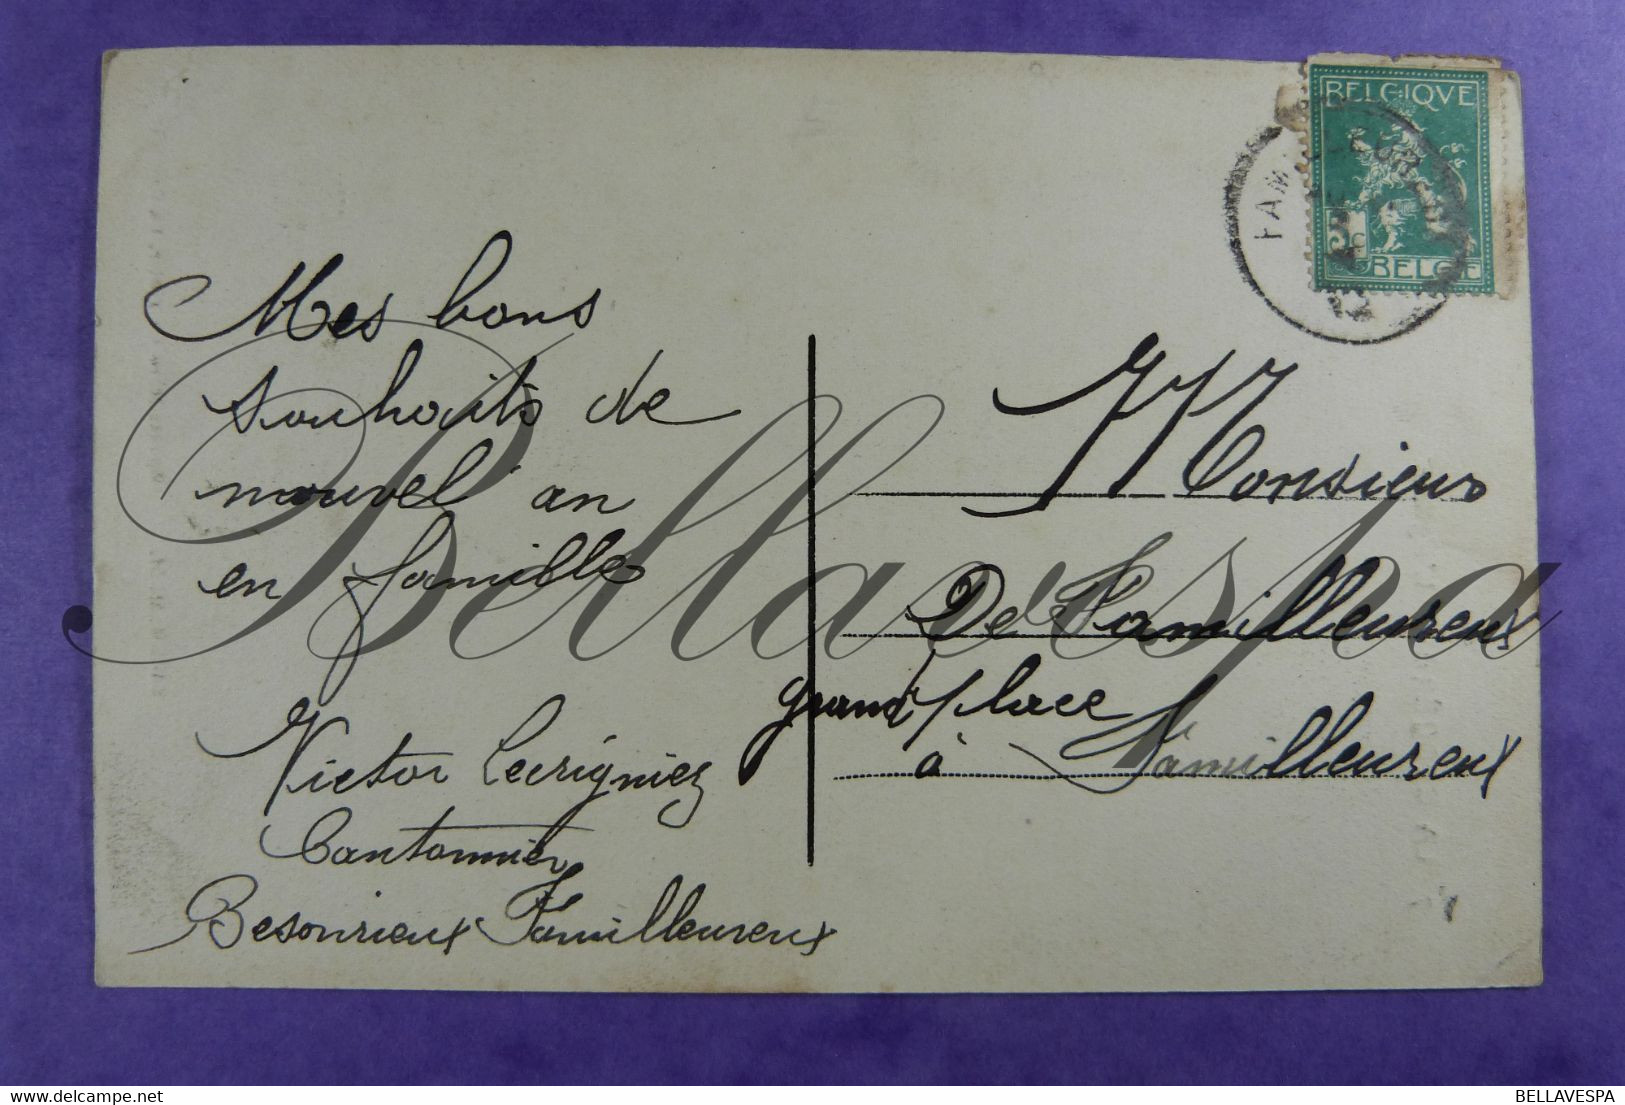 Mes bons
souhaits de
nouvel an
en famille
Victor Lecrigniez
Cantonnier
Besonrieux Familleureux
BELGIQVE
5c
BELGIE
Monsieur
De Familleureux
grand'place
à Familleureux
Bellavespa
delcampe.net
BELLAVESPA